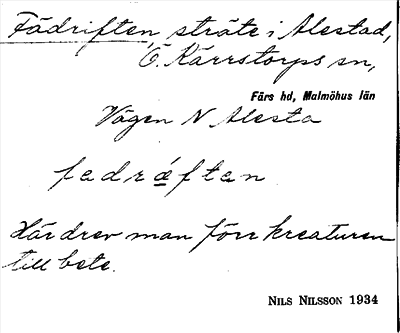 Fädriften, sträte i Alestad,
Ö. Kärrstorps sn,
Färs hd, Malmöhus län
Vägen N Alesta
fadrǽftan
Här drev man förr kreaturen
till bete.
NILS NILSSON 1934